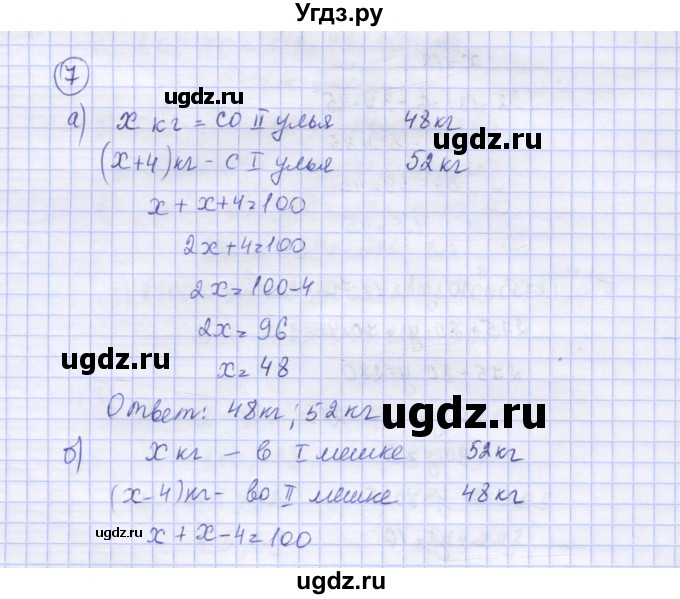 Угдз.ру
7
ugdz.ru
ugdz.ru
а) x кг = со II улья 48 кг
(x+4) кг – с I улья 52 кг
x + x + 4 = 100
2x + 4 = 100
2x = 100 – 4
2x = 96
ugdz.ru
x = 48
Ответ: 48 кг; 52 кг
ugdz.ru
б) x кг – в I мешке 52 кг
(x–4) кг – во II мешке 48 кг
ugdz.ru
x + x – 4 = 100
ugdz.ru